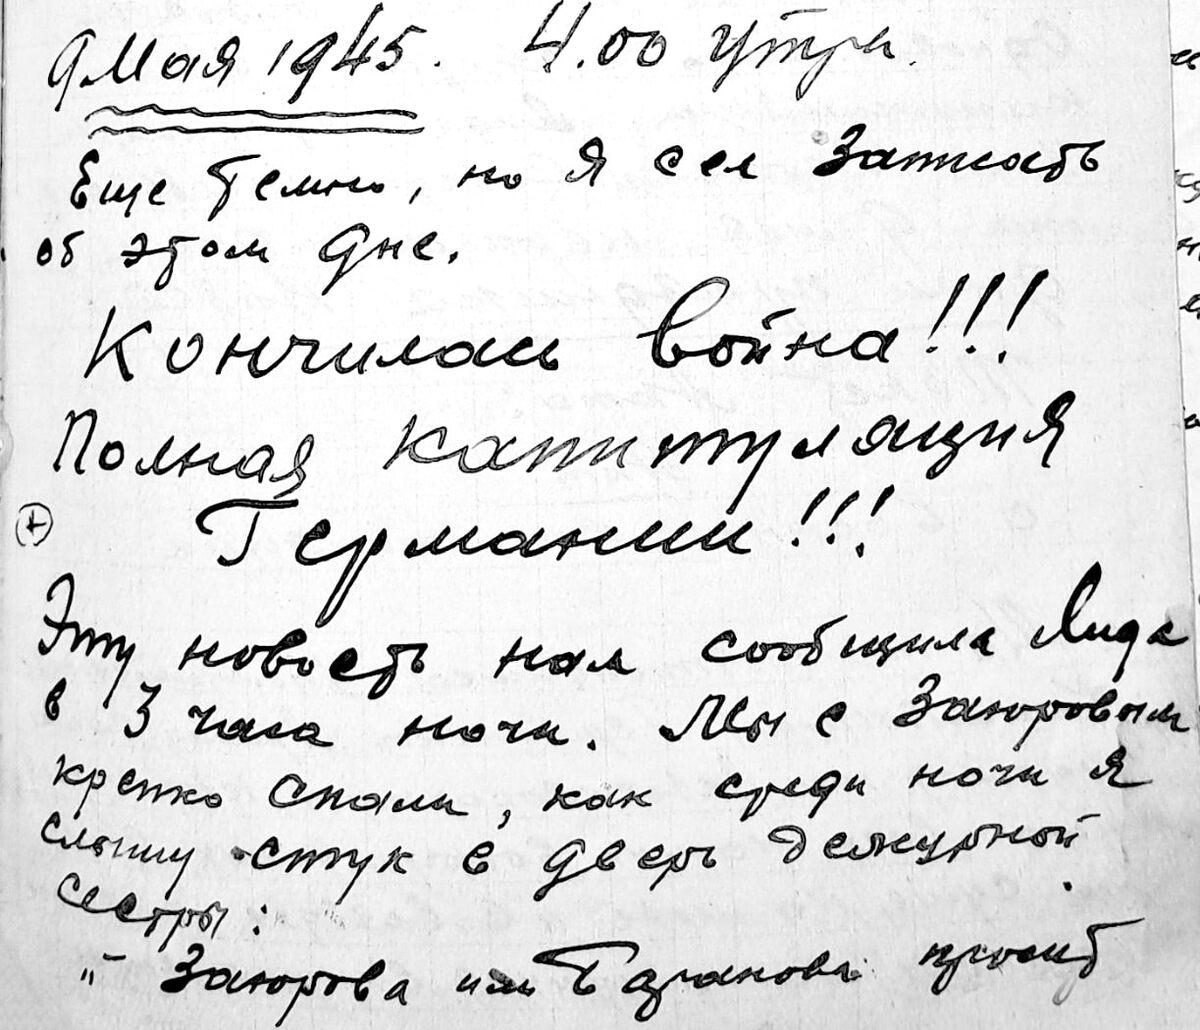 9 Мая 1945. 4.00 утра.
Еще темно, но я сел записать
об этом дне.
Кончилась война!!!
Полная капитуляция
Германии!!!
Эту новость нам сообщила Лида
в 3 часа ночи. Мы с
крепко спали, как среди ночи я
слышу стук в дверь дежурной
сестры:
или просит